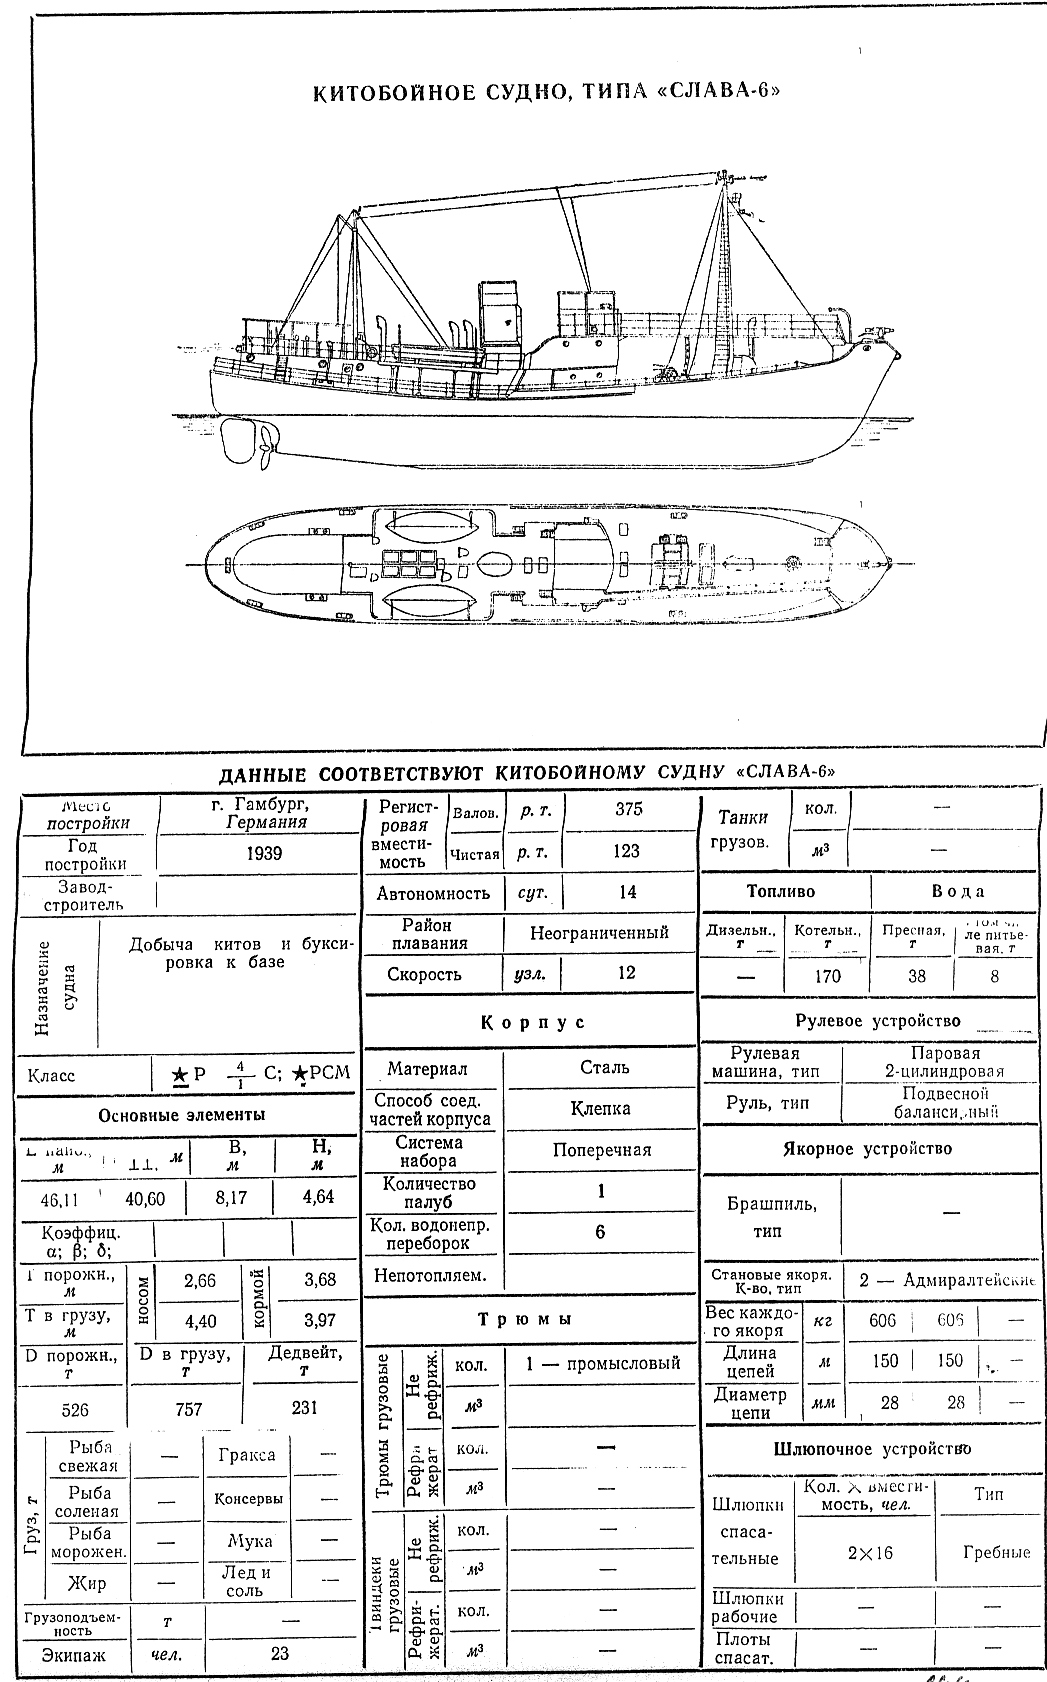 КИТОБОЙНОЕ СУДНО, ТИПА «СЛАВА-6»
ДАННЫЕ СООТВЕТСТВУЮТ КИТОБОЙНОМУ СУДНУ «СЛАВА-6»
Место
постройки
г. Гамбург,
Германия
Год
постройки
1939
Завод-
строитель
Назначение
судна
Добыча китов и букси-
ровка к базе
Класс
★ Р 4/1 С; ★РСМ
Основные элементы
м
⊥⊥, м
В,
м
Н,
м
46,11
40,60
8,17
4,64
Коэффиц.
α; β; δ;
Т порожн.,
м
носом
2,66
кормой
3,68
Т в грузу,
м
4,40
3,97
D порожн.,
т
D в грузу,
т
Дедвейт,
т
526
757
231
Груз, т
Рыба
свежая
—
Гракса
—
Рыба
соленая
—
Консервы
—
Рыба
морожен.
—
Мука
—
Жир
—
Лед и
соль
—
Грузоподъем-
ность
т
—
Экипаж
чел.
23
Регист-
ровая
вмести-
мость
Валов.
р. т.
375
Чистая
р. т.
123
Автономность
сут.
14
Район
плавания
Неограниченный
Скорость
узл.
12
Корпус
Материал
Сталь
Способ соед.
частей корпуса
Клепка
Система
набора
Поперечная
Количество
палуб
1
Кол. водонепр.
переборок
6
Непотопляем.
Трюмы
Трюмы грузовые
Не
рефриж.
кол.
1 — промысловый
м³
—
Рефри
жерат
кол.
—
м³
—
Твиндеки
грузовые
Не
рефриж.
кол.
—
м³
—
Рефри-
жерат.
кол.
—
м³
—
Танки
грузов.
кол.
—
м³
—
Топливо
Вода
Дизельн.,
т
Котельн.,
т
Пресная,
т
ле питье-
вая, т
—
170
38
8
Рулевое устройство
Рулевая
машина, тип
Паровая
2-цилиндровая
Руль, тип
Подвесной
балансирный
Якорное устройство
Брашпиль,
тип
—
Становые якоря.
К-во, тип
2 — Адмиралтейские
Вес каждо-
го якоря
кг
606
606
—
Длина
цепей
м
150
150
—
Диаметр
цепи
мм
28
28
—
Шлюпочное устройство
Шлюпки
спаса-
тельные
Кол. × вмести-
мость, чел.
Тип
2×16
Гребные
Шлюпки
рабочие
—
—
Плоты
спасат.
—
—